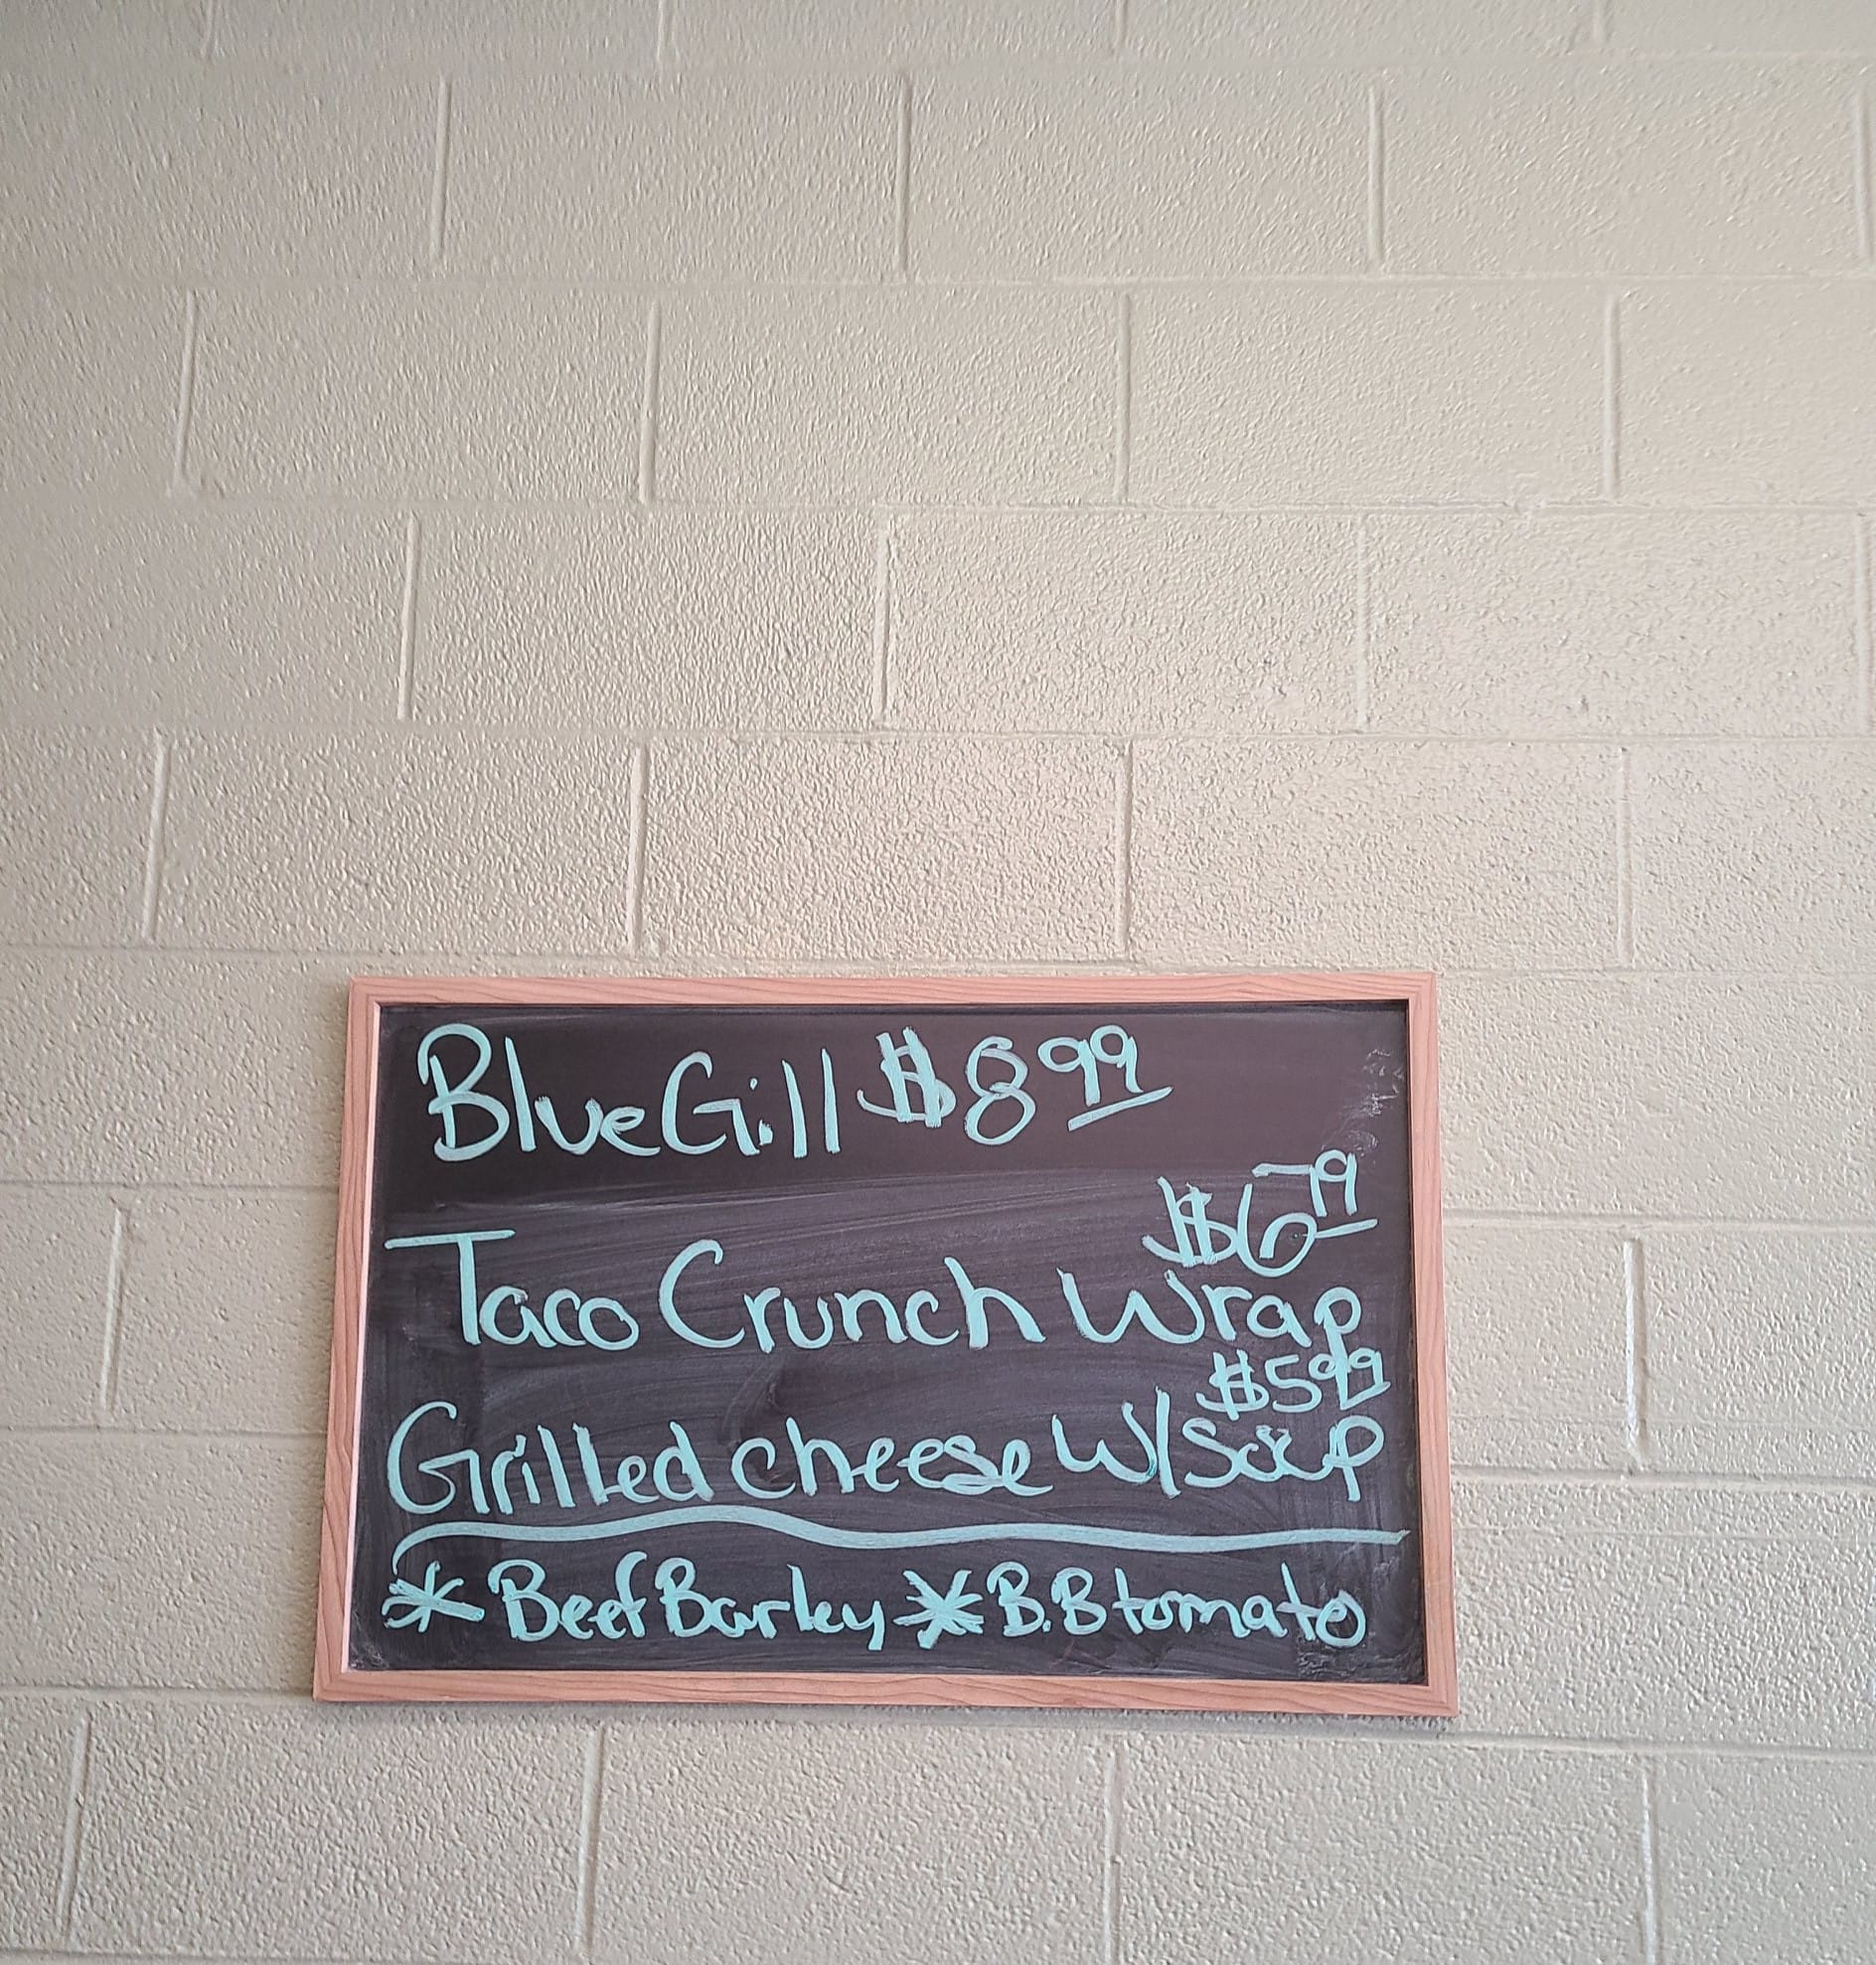 BlueGill $8.99
$6.79
Taco Crunch Wrap
$5.99
Grilled cheese W/Soup
* Beef Barley * B.B tomato